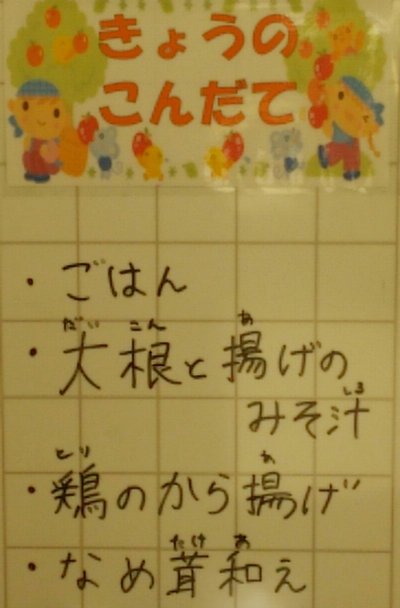 きょうの
こんだて
・ごはん
・大根と揚げの
みそ汁
・鶏のから揚げ
・なめ茸和え